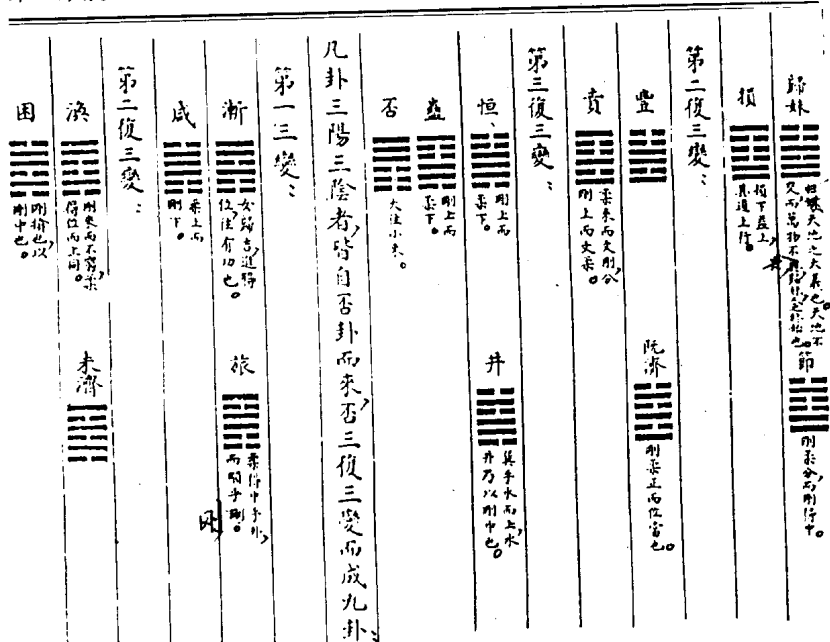 歸妹 歸妹天地之大義也。天地不
交而萬物不興歸妹人之終始也。
節 剛柔分而剛得中。
損 損下益上,
其道上行。
第二復三變:
豐
既濟 剛柔正而位當也。
賁 柔來而文剛,分
剛上而文柔。
第三復三變:
恒、 剛上而
柔下。
井 巽乎水而上水,
井乃以剛中也。
益 剛上而
柔下。
否 大往小來。
凡卦三陽三陰者,皆自否卦而來,否三復三變而成九卦:
第一三變:
漸 女歸吉,進得
位,往有功也。
旅 柔得中乎外,
而順乎剛。
咸 柔上而
剛下。
第二復三變:
渙 剛來而不窮,柔
得位而上同。
未濟
困 剛揜也,以
剛中也。